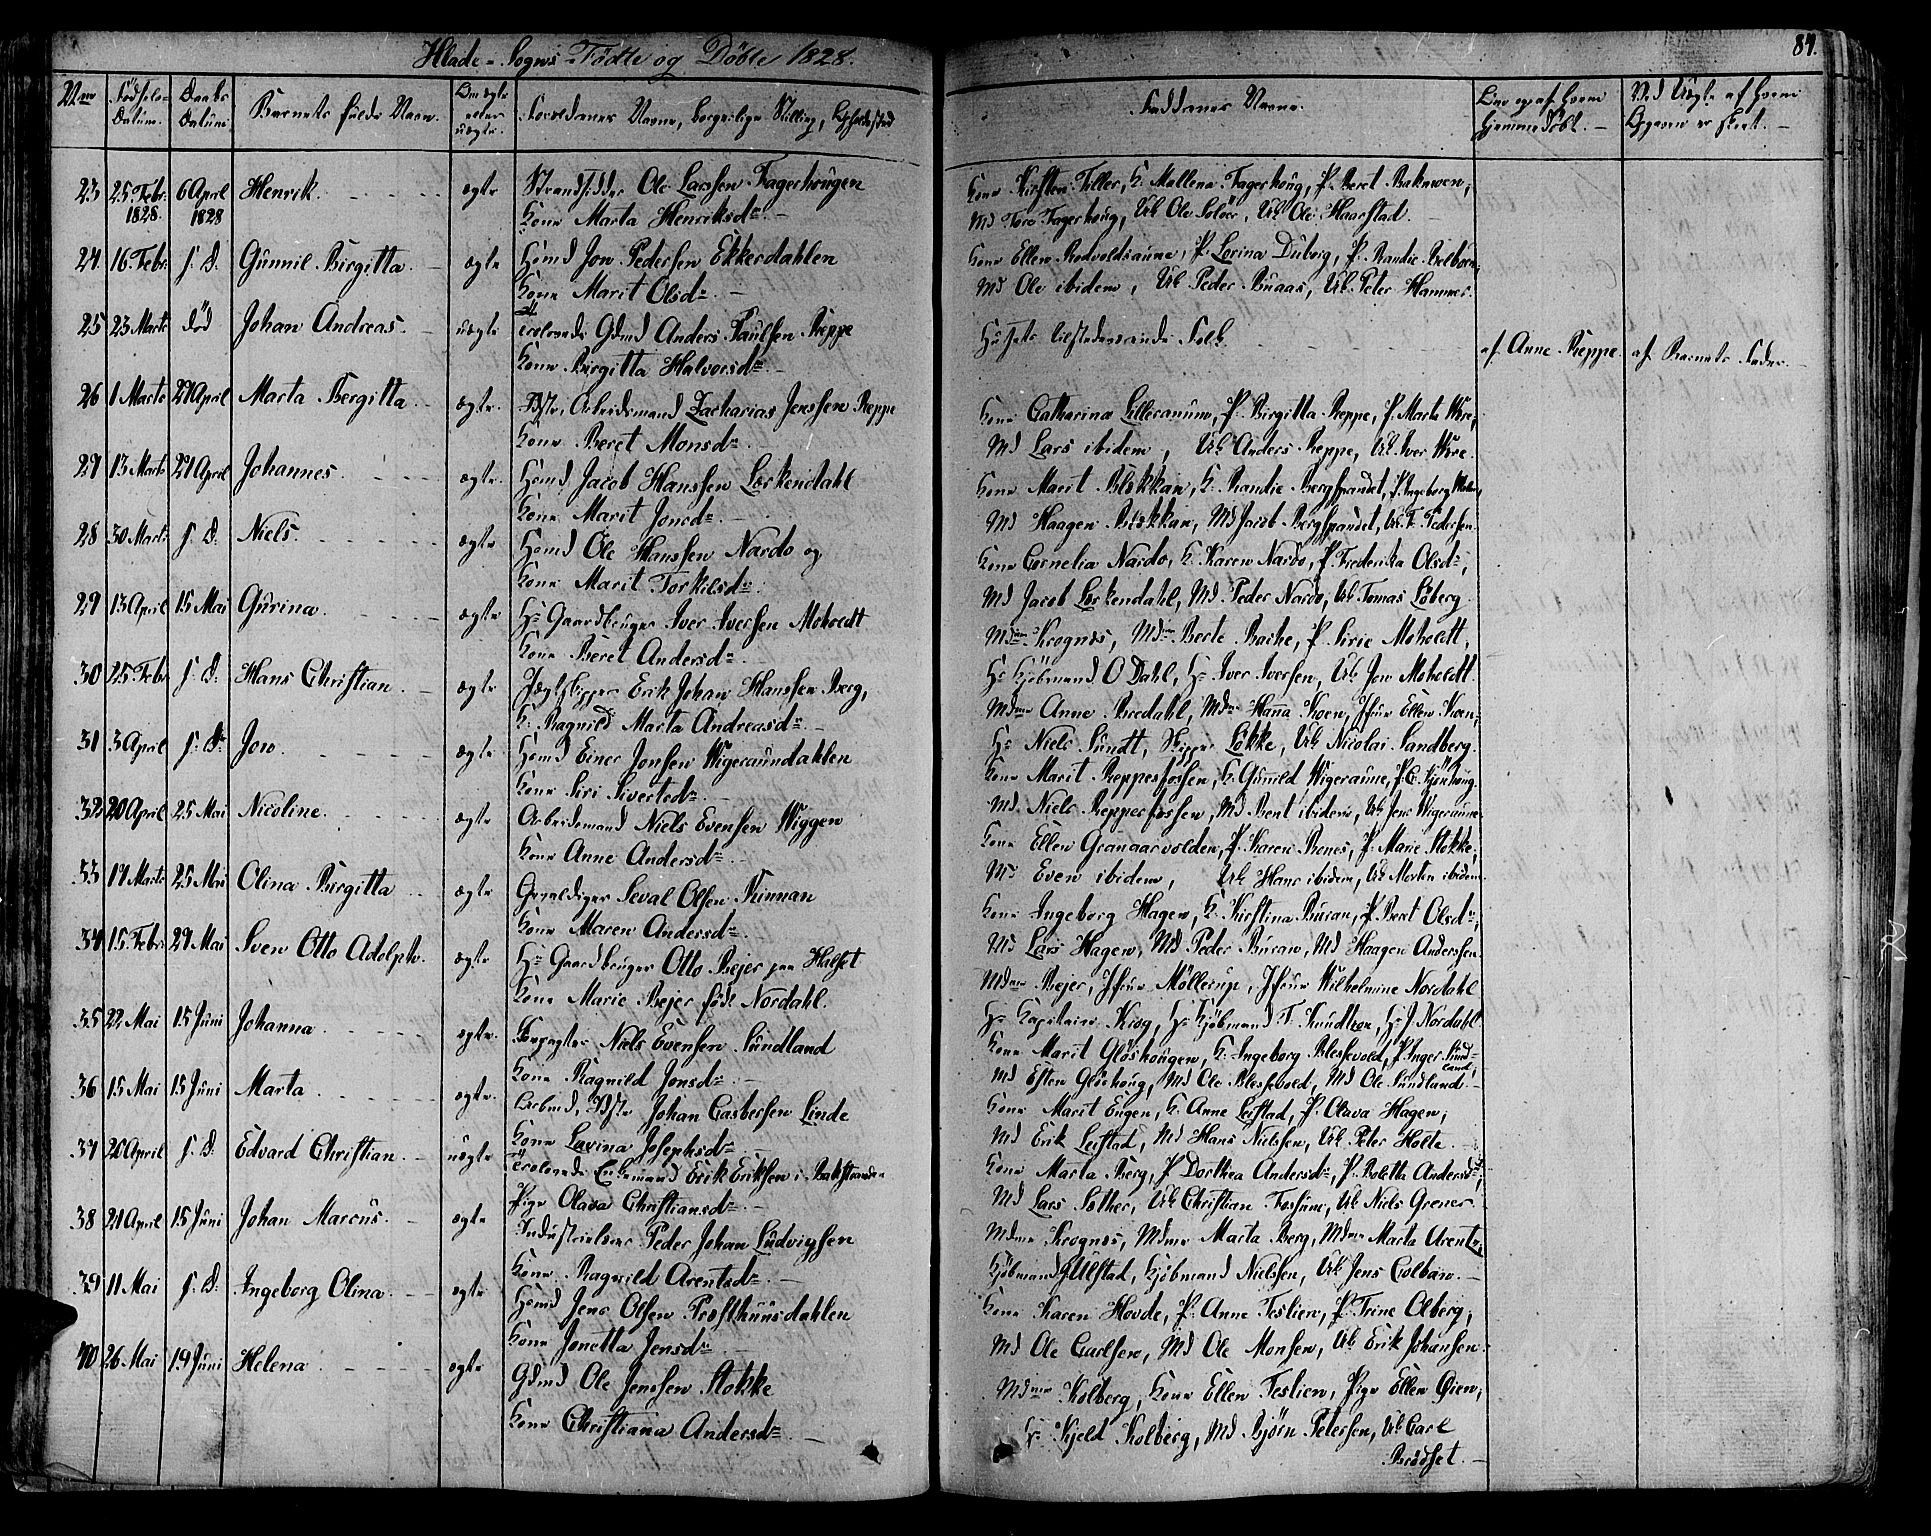 Hlade-Sogns Fødte og Døbte 1828.
84.
Nro
Fødsels-Datum.
Daabs Datum
Barnets fulde Navn.
Om ægte eller uægte.
Forældrenes Navne, borgerlige Stilling, Opholdssted
Faddernes Navne.
hjemmedöbt.
23 25 Febr. 1828. 6 April 1828 Henrik. ægte Strandsidder Ole Larssen Fagerhougen
Kone Marta Henriksdr.
Kone Kirsten Tiller, K. Mallena Fagerhoug, P. Beret Bakmoen,
Md Tore Fagerhoug, Uk Ole Soloër, Uk Ole Haarstad.
24 16 Febr. s. D. Gunnil Birgitta. ægte Hsmd Jon Pedersen Ekkerdahlen
Kone Marit Olsdr.
Md Ole ibidem, Uk Peder Buaas, Uk Peter Hammer.
25 23 Marts död Johan Andreas. uægte Gdmd Anders Paulsen Reppe
Kone Birgitta Halvorsdr.
Husets tilstedeværende Folk.
af Anne Reppe. af Barnets Fader.
26 1 Marts 27 April Marta Bergitta. ægte. Arbeidsmand Zacharias Jenssen Reppe
Kone Beret Monsdr.
Kone Catharina Lilleranum, P. Birgitta Reppe, P. Marta Være,
Md Lars ibidem, Uk Anders Reppe, Uk Iver Være.
27 13 Marts 27 April Johannes. ægte. Hsmd Jacob Hanssen Lerkendahl
Kone Marit Jonsdr.
Kone Marit Blökkan, K. Randie Bergspandet, P. Ingeborg
Md Haagen Blökkan, Md Jacob Bergspandet, Uk T. Pedersen.
28 30 Marts s. D. Niels. ægte Hsmd Ole Hanssen Nardo og
Kone Marit Torkilsdr.
Kone Cornelia Nardo, K. Karen Nardo, P. Frederika Olsdr,
Md Jacob Lerkendahl, Md Peder Nardo, Uk Tomas Loberg.
29 13 April 15 Mai Gurina. ægte Hr Gaardbruger Iver Iversen Moholdt
Kone Beret Andersdr.
Mdme Krognes, Mdme Berte Bache, P. Sirie Moholdt,
Hr Kjöbmand O Dahl, Hr Iver Iversen, Uk Jon Moholdt.
30 25 Febr s. D. Hans Christian. ægte Jægtskipper Erik Johan Hanssen Berg,
K. Ragnild Marta Andreasdr.
Mdme Anne Bredahl, Mdme Hanna Koen, Jfru Ellen Koen,
Hr Niels Sundt, Skipper Løkke, Uk Nicolai Sandberg.
31 3 April s. D. Jon. ægte Hsmd Einer Jonsen Wigeraundahlen
Kone Siri Sivertsdr.
Kone Marit Reppesfossen, K. Gunnild Wigeraune,
Md. Niels Reppesfossen, Md Bent ibidem, Uk Jens Wigeraune
32 20 April 25 Mai Nicoline. ægte Arbeidsmand Niels Evensen Wiggen
Kone Anne Andersdr.
Kone Ellen Granaasvolden, P. Karen Ranes, P. Marie Stokke,
Md Even ibidem, Uk Hans ibidem, Uk Morten ibidem.
33 17 Marts 25 Mai Olina Birgitta ægte Gevaldiger Seval Olsen Kinnan
Kone Maren Andersdr.
Kone Ingeborg Hagen, K. Kirstina Buran, P. Beret Olsdr,
Md Lars Hagen, Md Peder Buran, Md Haagen Andersen.
34 15 Febr. 29 Mai Sven Otto Adolph. ægte. Hr Gaardbruger Otto Bejer paa Halset
Kone Marie Bejer föd Nordahl.
Mdme Bejer, Jfru Möllerup, Jfru Wilhelmine Nordahl
Hr Kapitain Krog, Hr Kjöbmand F. Knudtzon, Hr J. Nordahl.
35 22 Mai 15 Juni Johanna. ægte. Forpagter Niels Evensen Sundland
Kone Ragnild Jonsdr.
Kone Marit Glöshougen, K. Ingeborg Blessevold, P. Inger Sundland,
Md Esten Glöshoug, Md Ole Blessevold, Md Ole Sundland.
36 15 Mai 15 Juni Marta. ægte. Johan Casbersen Linde
Kone Lavina Josephsdr
Kone Marit Engen, K. Anne Leistad, P. Olava Hagen,
Md Erik Leistad, Md Hans Nielssen, Uk Peter Holte.
37 20 April s. D. Edvard Christian. uægte Erik Eriksen i Bakstranden
Pige Olava Christiansdr.
Kone Marta Berg, P Dorthea Andersdr, P. Boletta Andersdr
Md Lars Sother, Uk Christian Fossum, Uk Niels Grener.
38 21 April 15 Juni Johan Marcus. ægte Peder Johan Ludvigsen
Kone Ragnild Arentsdr.
Mdme Krognes, Mdme Marta Berg, Mdme Marta Arentz,
Kjöbmand Gulstad, Kjöbmand Nielssen, Uk Jens Colban.
39 11 Mai s. D. Ingeborg Olina. ægte Hsmd Jens Olsen Presthuusdahlen
Kone Jonetta Jensdr.
Kone Karen Hovde, P. Anne Teslien, P. Trine Olberg,
Md Ole Carlsen, Md Ole Monsen, Uk Erik Johansen
40 26 Mai 19 Juni Helena. ægte Gdmd Ole Jenssen Stokke
Kone Christiana Andersdr.
Mdme Kolberg, Kone Ellen Teslien, Pige Ellen Øien,
Hr Kjeld Kolberg, Md Bjørn Petersen, Uk Carl
Brödset.